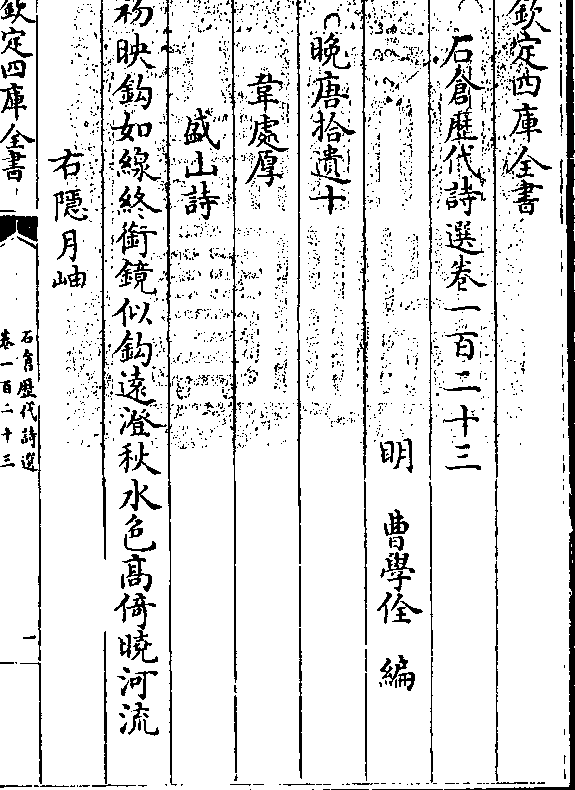 欽定四庫全書
石倉歴代詩選卷一百二十三
明　曹學佺　編
晚唐拾遺十
韋處厚
盛山詩
初映鈎如線終銜鏡似鈎遠澄秋水色高倚曉河流
右隱月岫
欽定四庫全書
石倉歴代詩選
卷一百二十三
一